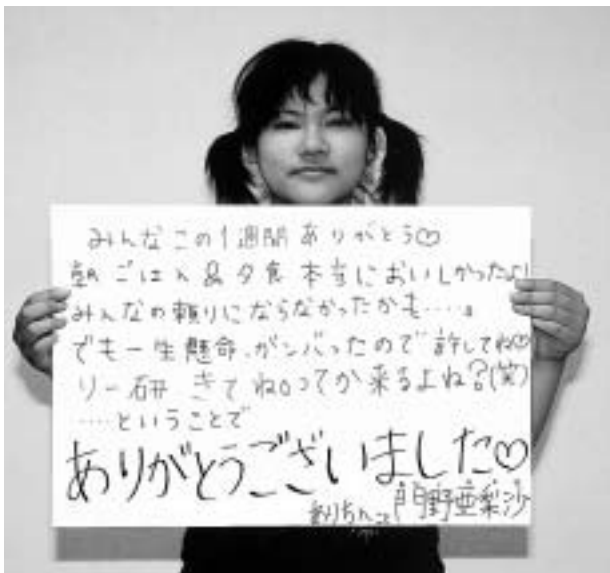 みんなこの1週間ありがとう♡
朝ごはん&夕食本当においしかったよ!
みんなの頼りにならなかったかも……。
でも一生懸命、ガンバったので許してね♡
リー研きてね。ってか来るよね?(笑)
……ということで
ありがとうございました♡
ありちゃんこと門野亜梨沙